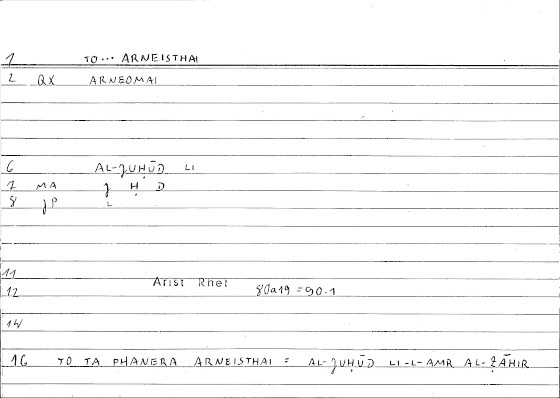 1 TO... ARNEISTHAI
2 QX ARNEOMAI
6 AL-JUḤŪD LI
7 MA J Ḥ D
8 JP L
11
12 Arist Rhet 80a19 = 90.1
14
16 TO TA PHANERA ARNEISTHAI = AL-JUḤŪD LI-L-AMR AL-ẒĀHIR